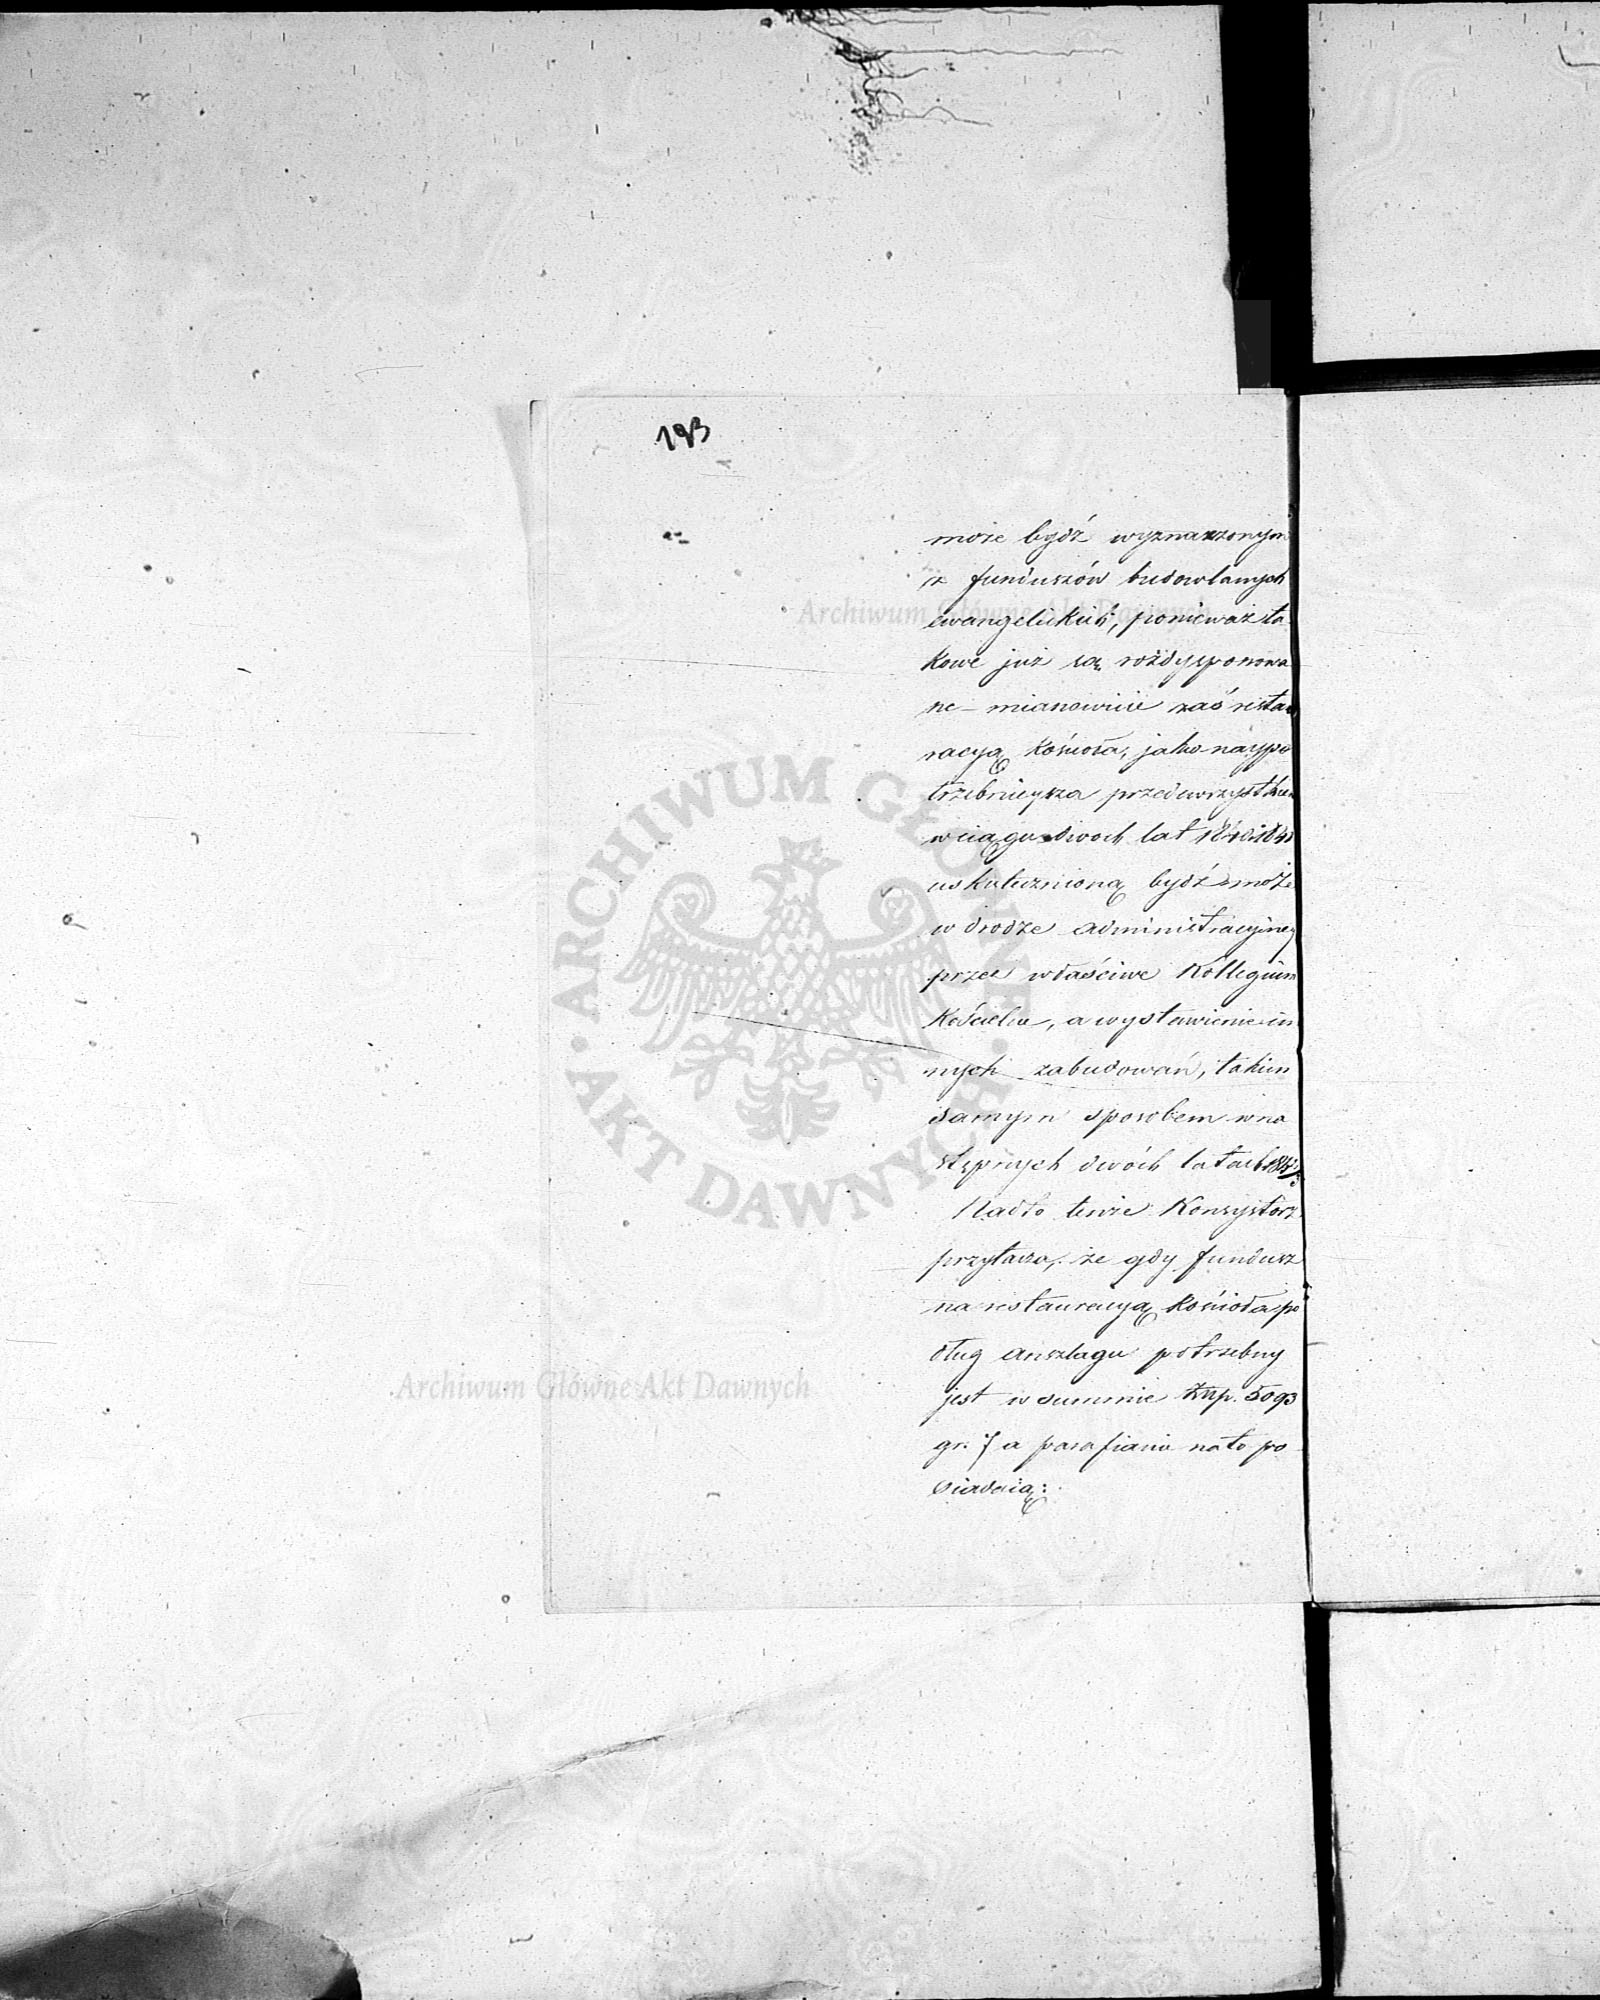 193
może bydź wyznaczonym
z funduszów budowlanych
ewangelickich, ponieważ ta
kowe już są rozdysponowa
ne – mianowicie zaś restau
racyą Kościoła, jako naypo
trzebnieysza przedewszystkiem
w ciągu dwóch lat
uskutecznioną bydź może
w drodze administracyiney
przez właściwe Kollegium
Kościelne, a wystawienie in
nych zabudowań, takim
samym sposobem w na
stępnych dwóch latach
Nadto tenże Konsystorz
przytacza, że gdy fundusz
na restauracyą Kościoła po
dług anszlagu potrzebny
jest w summie Złp. 5093
gr. 7 a parafianie na to po
siadaią:
ARCHIWUM GŁÓWNE AKT DAWNYCH
Archiwum Główne Akt Dawnych
Archiwum Główne Akt Dawnych